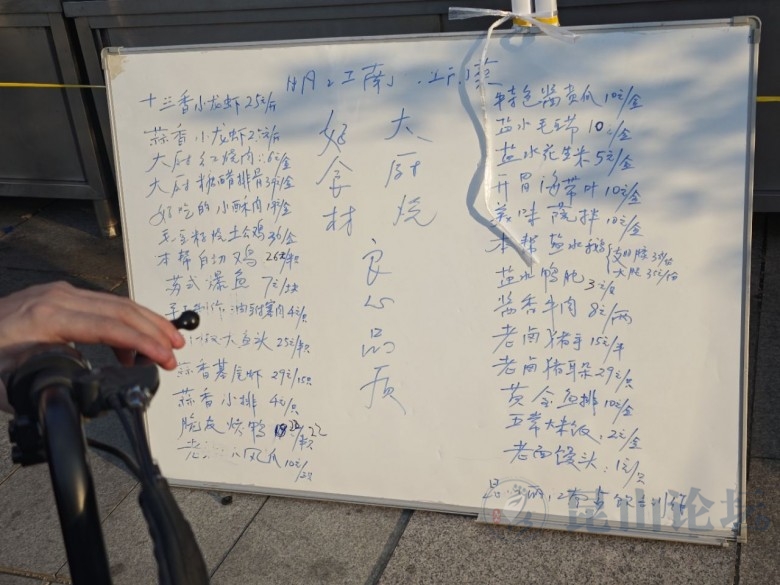 十三香小龙虾25元/斤
蒜香小龙虾25元/斤
大厨红烧肉 6元/盒
大厨糖醋排骨39元/盒
好吃的小酥肉 元/盒
毛豆籽烧土公鸡36/盒
本帮白切鸡 26元/只
苏式爆鱼 7元/块
油面塞肉4元/只
大鱼头 25元/只
蒜香基尾虾 29元/15只
蒜香小排 4元/只
脆皮烤鸭 22元/只
凤爪10元/2只
好食材
大厨烧
良心品质
特色酱黄瓜 10元/盒
盐水毛豆节 10元/盒
盐水花生米 5元/盒
开胃海带叶 10元/盒
美味 拌 10元/盒
本帮盐水鹅
盐水鸭肫 3元/只
酱香牛肉 8元/两
老卤猪手 15元/半
老卤猪耳朵 29元/只
黄金鱼排 10元/盒
五常大米饭 2元/盒
老面馒头:1元/只
昆山论坛